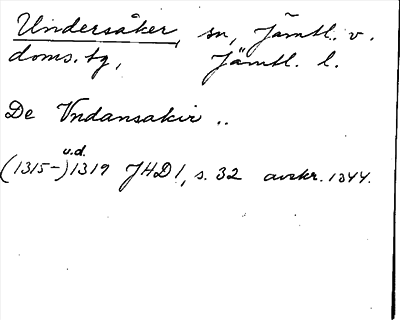 Undersåker, sn, Jämtl. v.
doms.tg, Jämtl. l.
De Vndansakir ..
u.d.
(1315-)1319 JHD 1, s. 32 avskr. 1844.